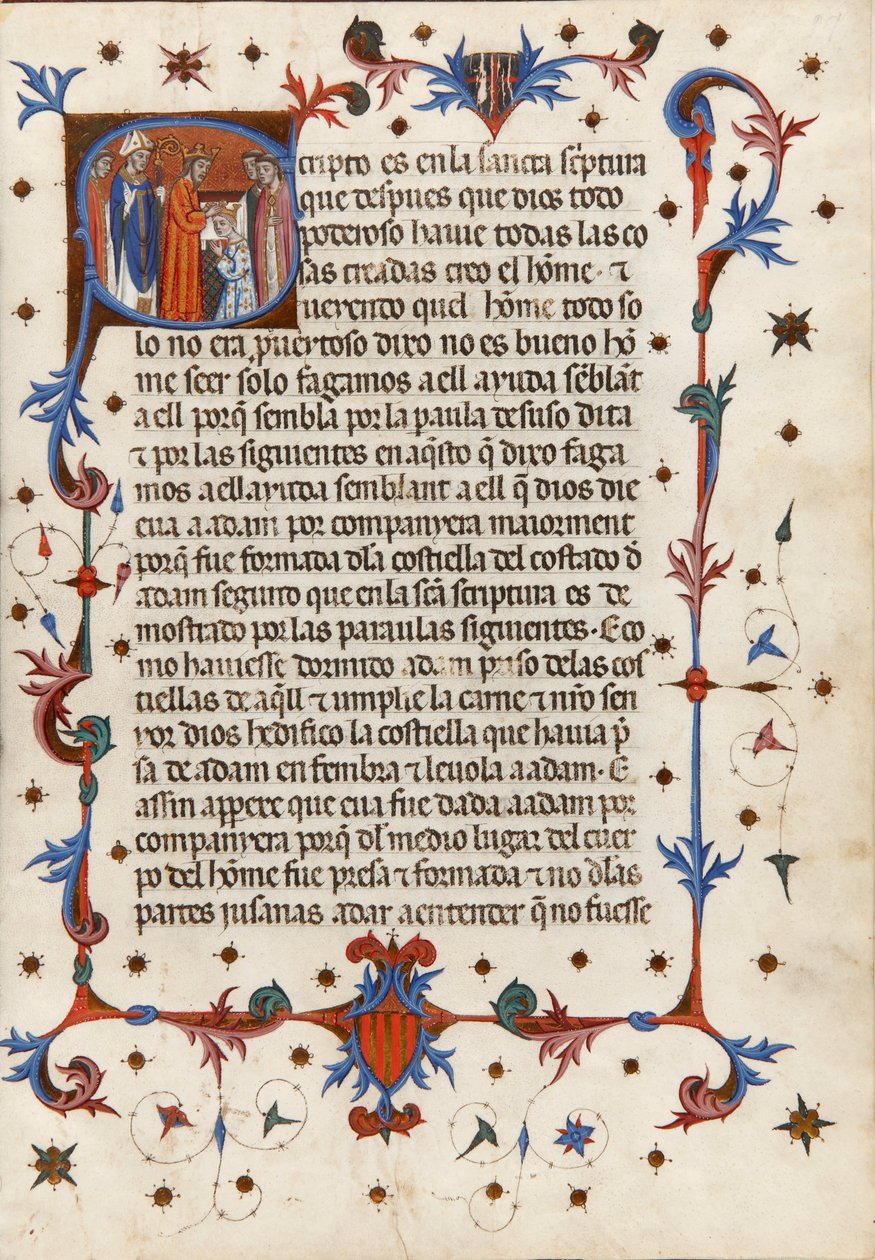 Scripto es en la sancta sc̃ptura
que despues que dios todo
poderoso hauie todas las co
sas creadas creo el hõme · ⁊
ueyendo quel hõme todo so
lo no era p̱uertoso dixo no es bueno hõ
me seer solo fagamos a ell ayuda sẽblãt
a ell porq̃ sembla por la paula desuso dita
⁊ por las siguientes en aq̃sto q̃ dixo faga
mos a ell ayuda semblant a ell q̃ dios die
eua a adam por companyera maiorment
porq̃ fue formada dl̃a costiella del costado d̃
adam seguno que en la scã scriptura es de
mostrado por las paraulas siguientes · E co
mo hauiesse dormido adam priso delas cos
tiellas de aq̃ll ⁊ umplie la carne ⁊ nr̃o sen
yor dios hedifico la costiella que hauia p̃
sa de adam en fembra ⁊ leuola a adam · E
assin app̱ere que eua fue dada a adam por
companyera porq̃ dl̃ medio lugar del cuer
po del hõme fue presa ⁊ formada ⁊ no dl̃as
partes jusanas a dar a entender q̃ no fuesse